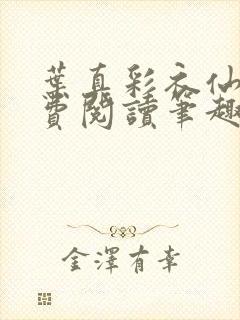 葉真彩衣仙
費閱讀筆趣
金澤有幸